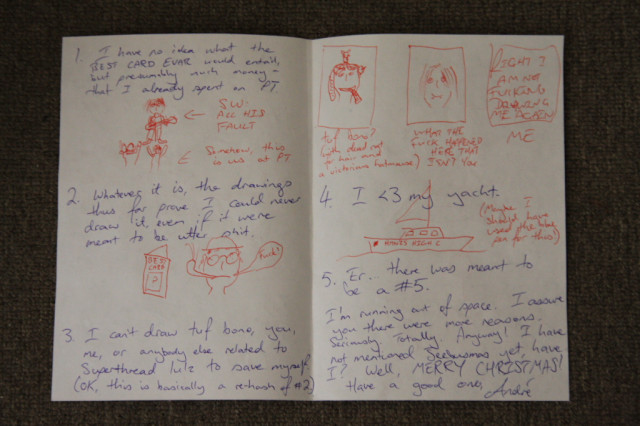 1. I have no idea what the
BEST CARD EVAR would entail,
but presumably much money -
that I already spent on PT
SW:
ALL HIS
FAULT
Somehow, this
is us at PT
2. Whatever it is, the drawings
thus far prove I could never
draw it, even if it were
meant to be utter shit.
BEST
CARD
?
Fuck!
3. I can't draw tuf bono, you,
me, or anybody else related to
Superthread lulz to save myself
(OK, this is basically a rehash of #2)
tuf bono?
(with dead
hair and
a victorian
WHAT THE
FUCK HAPPENED
HERE THAT
ISN'T YOU
RIGHT I
AM NE
FUCKING
DRAWING
ME AGAIN
ME
4. I <3 my yacht.
(Maybe I
should have
used the blue
pen for this)
HAWIS HIGH C
5. Er... there was meant to
be a #5.
I'm running out of space. I assure
you there were more reasons.
Seriously. Totally. Anyway! I have
not mentioned yet have
I? Well, MERRY CHRISTMAS!
Have a good one,
André